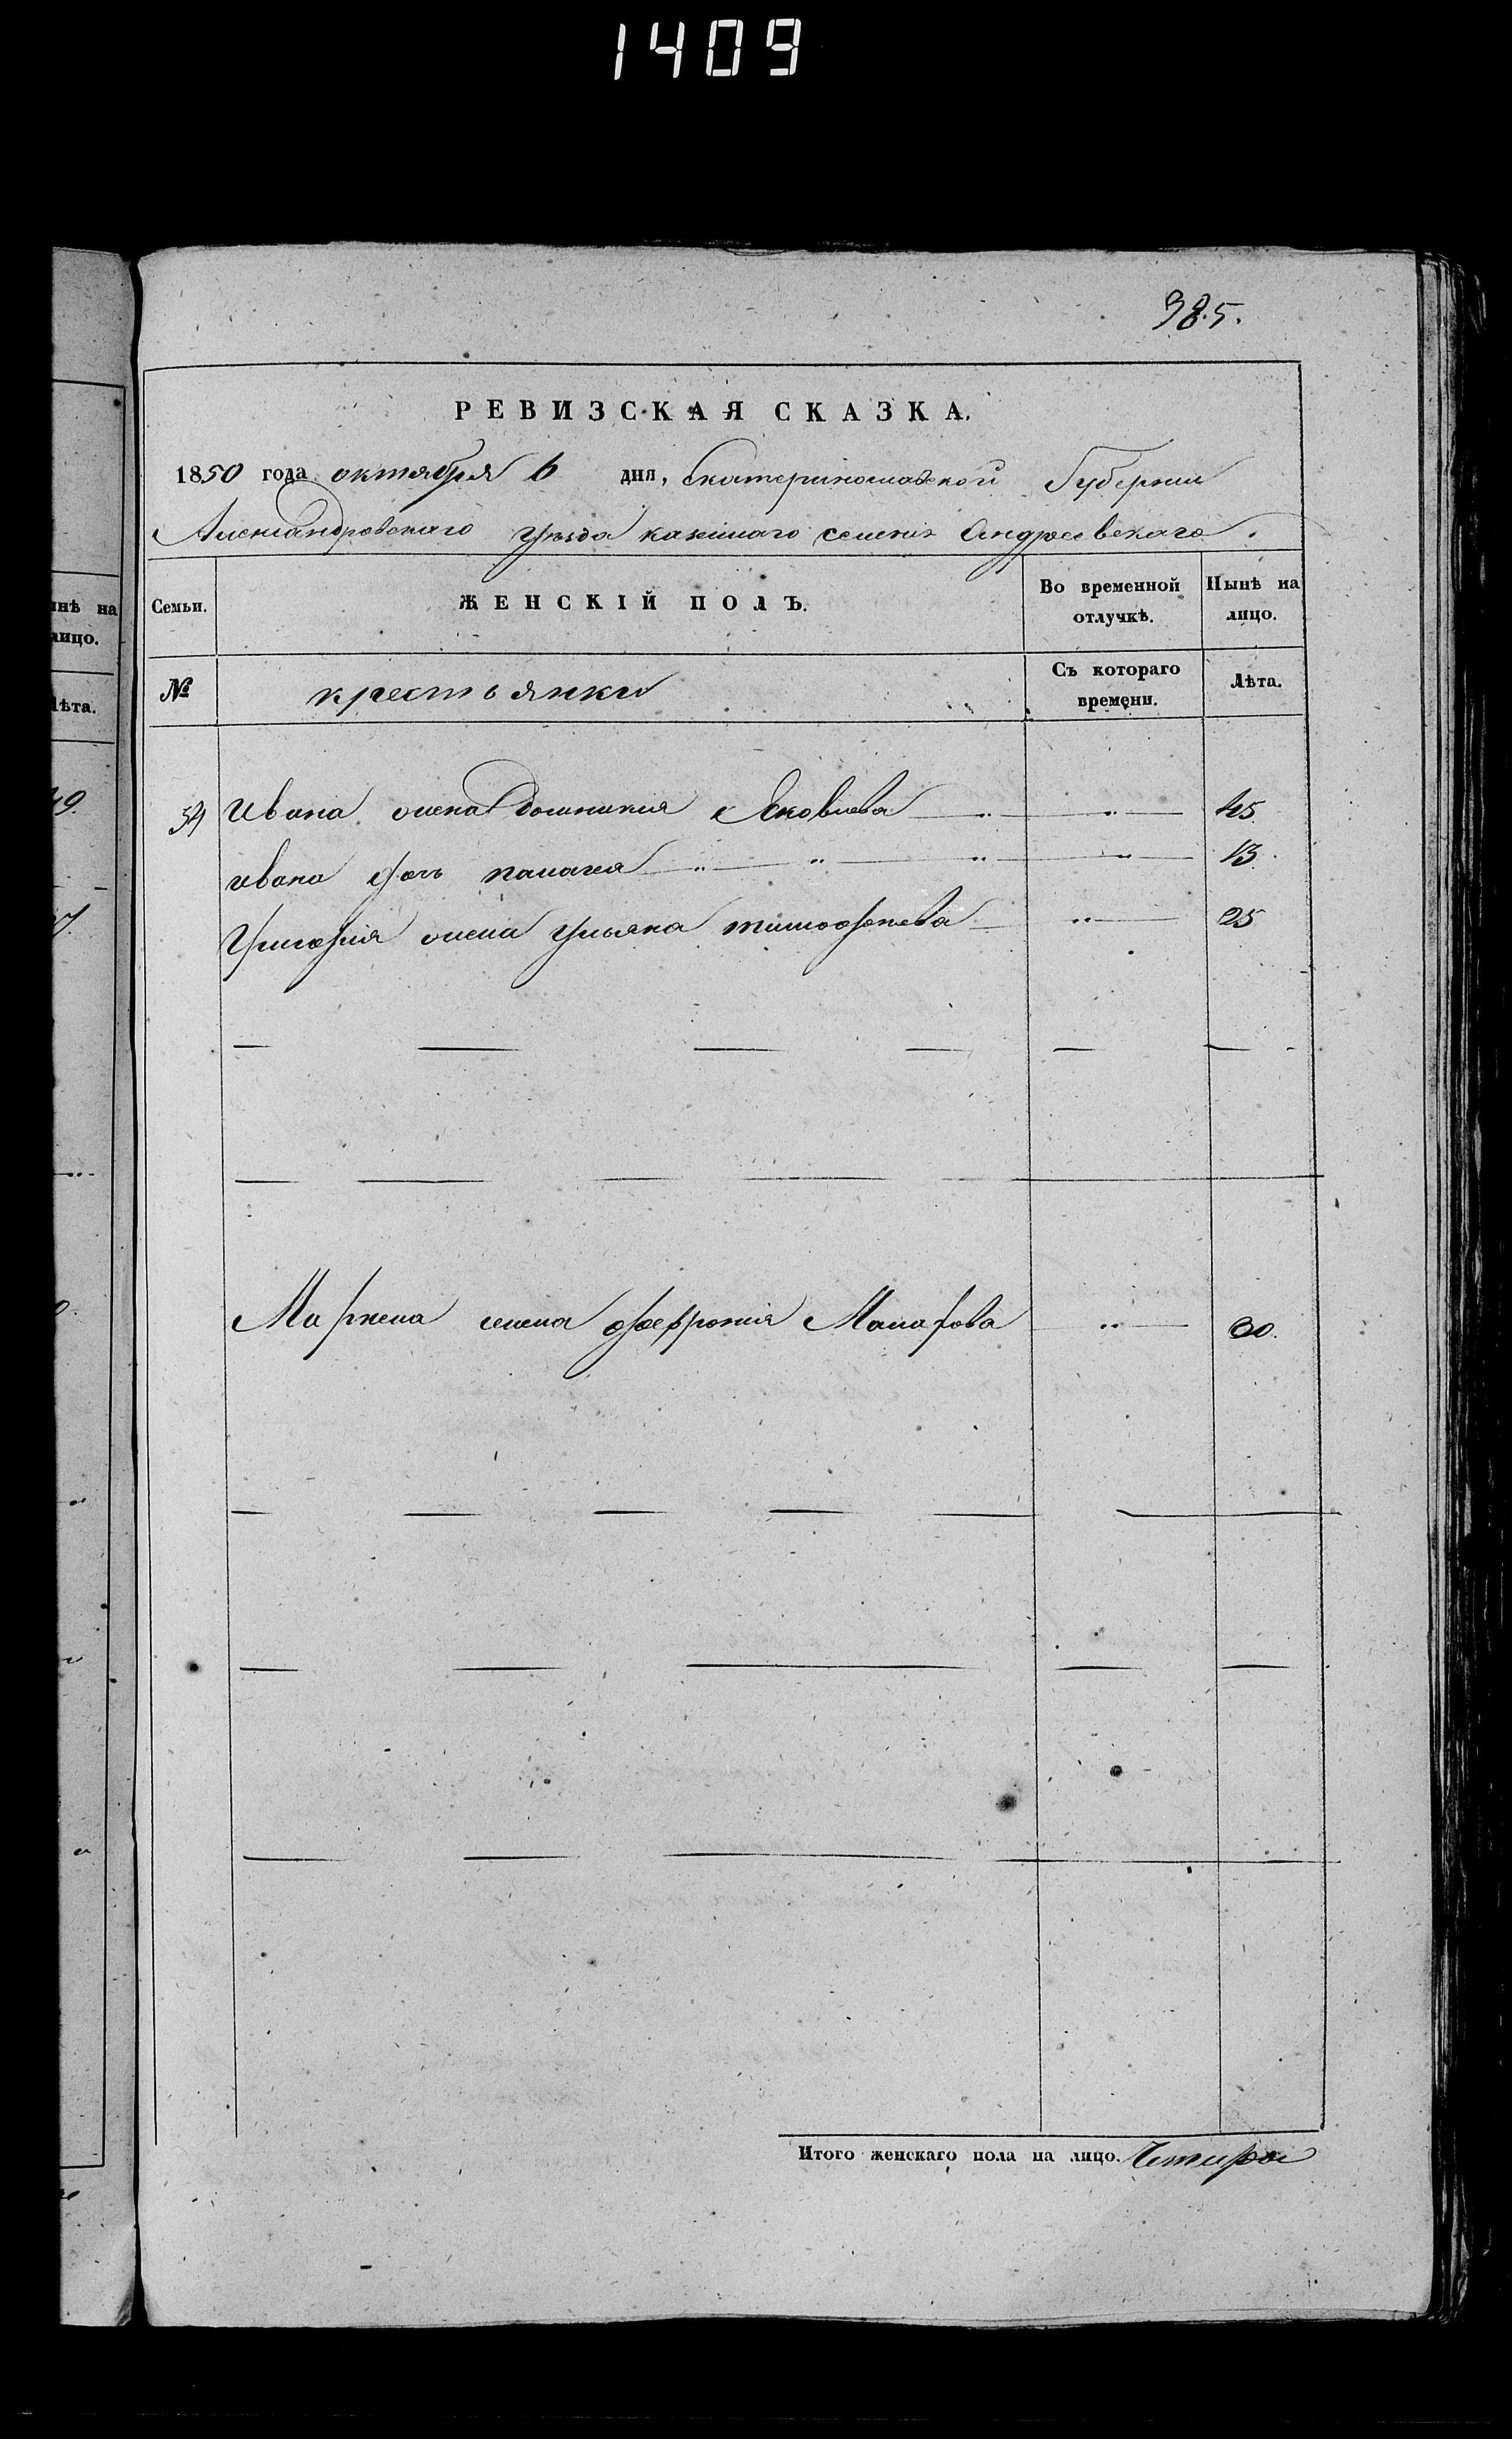 1409
385.
РЕВИЗСКАЯ СКАЗКА.
1850 года октября 6 дня, Екатеринославской Губернии
Александровскаго уезда казеннаго селения Андреевскаго.
Семьи.
ЖЕНСКІЙ ПОЛЪ.
Во временной отлучкѣ.
Нынѣ на лицо.
№
крестьянки
Съ котораго времени.
Лѣта.
Ивана жена домникия Яковлева 45
ивана дочь палагея 13.
Григория жена ульяна тимофеева 25
Маркела жена Феврония Макарова 30.
Итого женскаго пола на лицо. Четыре
нѣ на
лицо.
Лѣта.